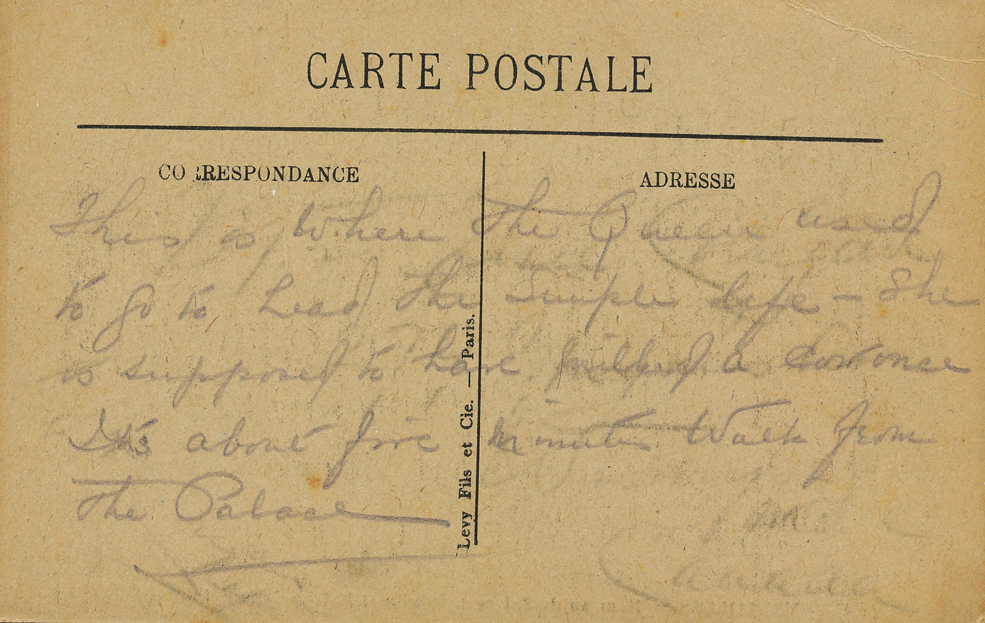 CARTE POSTALE
CORRESPONDANCE
ADRESSE
This is where the Queen used
to go to Lead the simple life – She
is supposed to have milked a cow once
It's about five minutes walk from
the Palace
Levy Fils et Cie. — Paris.
Canada